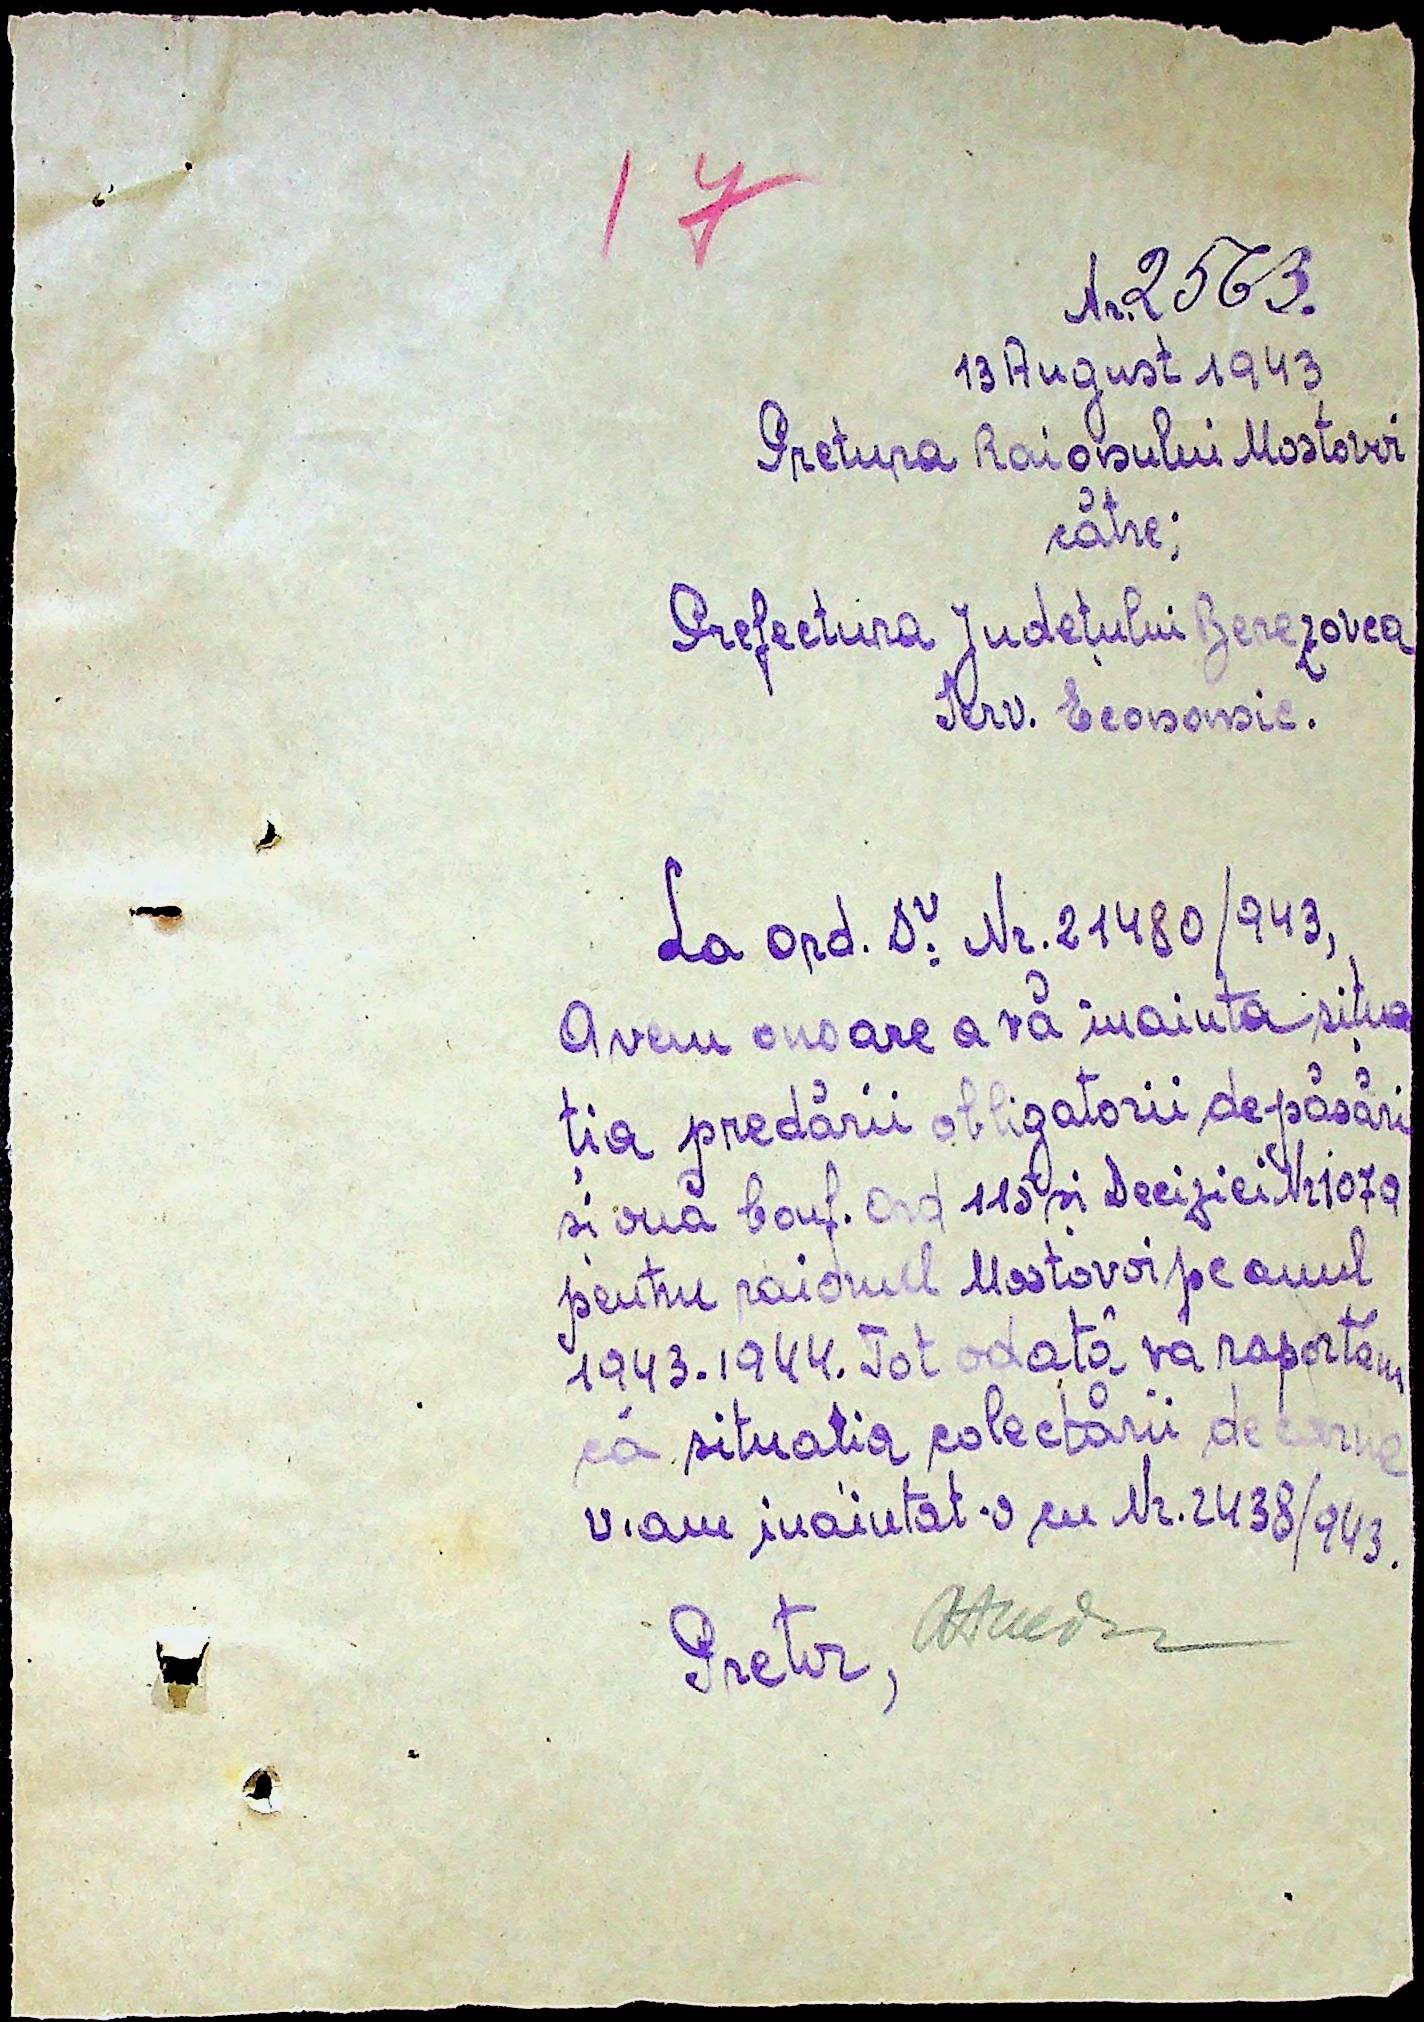 17
Nr. 2563.
13 August 1943
Pretura Raionului Mostovoi
către;
Prefectura Județului Berezovca
Serv. Economic.
La Ord. Dv. Nr. 21480/943,
Avem onoare a vă inainta situa
ția predării obligatorii de păsări
și ouă Conf. Ord 115 și Deciziei Nr 1079
pentru raionul Mostovoi pe anul
1943-1944. Tot odată va raportam
că situatia colectării de carne
v-am inaintat-o cu Nr. 2438/943.
Pretor,